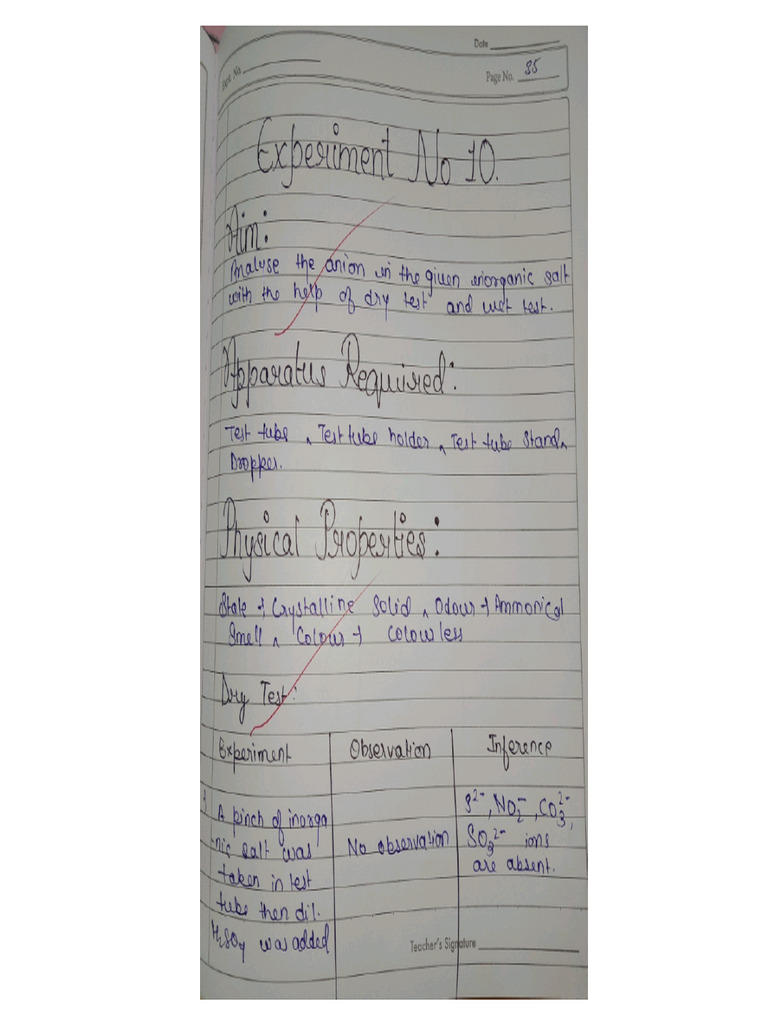 Date
Expt. No.
Page No. 35
Experiment No 10.
Aim:
Analuse the anion in the given inorganic salt
with the help of dry test and wet test.
Apparatus Required:
Test tube, Test tube holder, Test tube Stand,
Dropper.
Physical Properties:
State → Crystalline Solid, Odour → Ammonical
Smell, Colour → Colourless
Dry Test:
Experiment Observation Inference
1 A pinch of inorga
-nic salt was
taken in test
tube then dil.
H₂SO₄ was added
No observation
S²⁻, NO₂⁻, CO₃²⁻,
SO₃²⁻ ions
are absent.
Teacher's Signature